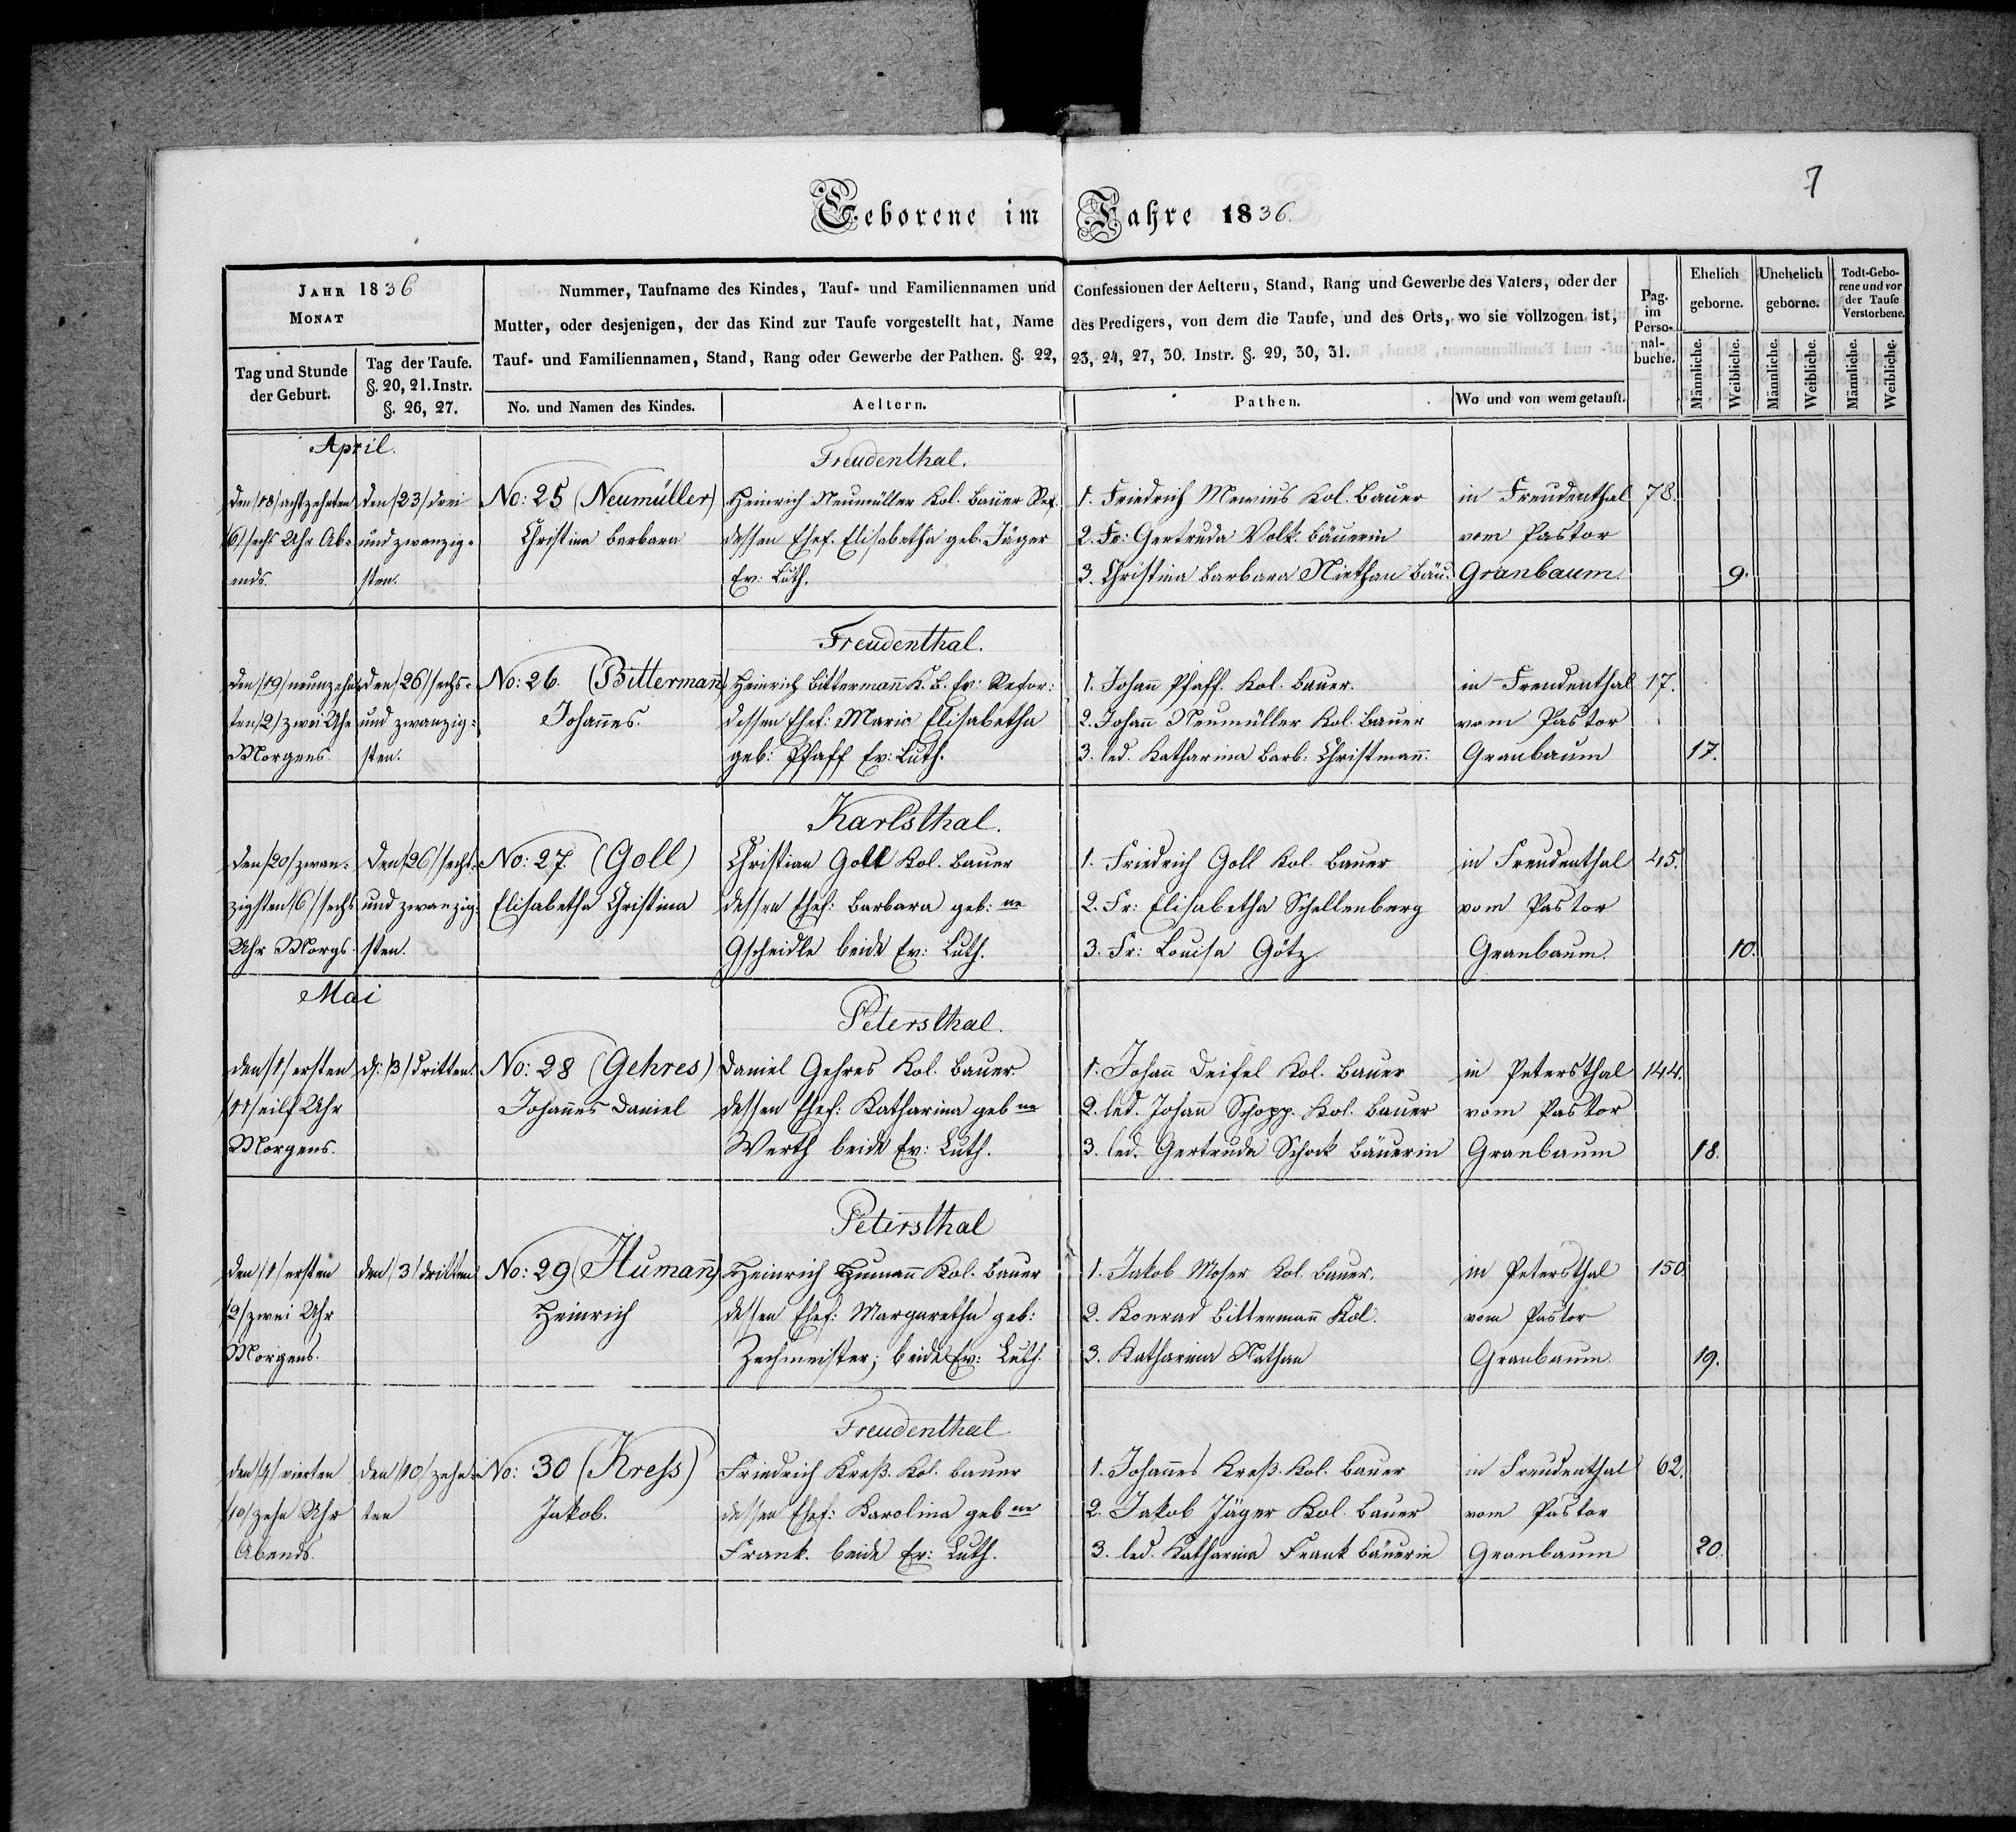 7
Geborene im Jahre 1836.
JAHR 1836
MONAT
Tag und Stunde der Geburt.
Tag der Taufe. §. 20, 21. Instr. §. 26, 27.
Nummer, Taufname des Kindes, Tauf- und Familiennamen und Confessionen der Aeltern, Stand, Rang und Gewerbe des Vaters, oder der
Mutter, oder desjenigen, der das Kind zur Taufe vorgestellt hat, Name des Predigers, von dem die Taufe, und des Orts, wo sie vollzogen ist,
Tauf- und Familiennamen, Stand, Rang oder Gewerbe der Pathen. §. 22, 23, 24, 27, 30. Instr. §. 29, 30, 31.
No. und Namen des Kindes.
Aeltern.
Pathen.
Wo und von wem getauft.
Pag. im Perso-nal-buche.
Ehelich geborne.
Unehelich geborne.
Todt-Gebo-rene und vor der Taufe Verstorbene.
Männliche. Weibliche. Männliche. Weibliche. Männliche. Weibliche.
April.
Freudenthal.
den /18/ achtzehnten den /23/ drei No: 25 (Neumüller) Heinrich Neumüller Kol. Bauer Ref. 1. Friedrich Mewius Kol. Bauer in Freudenthal 78.
/6/ sechs Uhr Ab- und zwanzig- Christina Barbara dessen Ehef. Elisabetha geb. Jäger 2. Fr: Gertruda Volk. Bäuerin vom Pastor
ends. sten. Ev: Luth. 3. Christina Barbara Niethan Bäu. Granbaum. 9.
Freudenthal.
den /19/ neunzehn- den /26/ sechs- No: 26. (Bittermann) Heinrich Bittermann K. B. Ev: Refor: 1. Johann Pfaff. Kol. Bauer. in Freudenthal 17.
ten /2/ zwei Uhr und zwanzig- Johannes. dessen Ehef: Maria Elisabetha 2. Johann Neumüller Kol. Bauer vom Pastor
Morgens. sten. geb: Pfaff Ev: Luth. 3. led. Katharina Barb: Christmann. Granbaum 17.
Karlsthal.
den /20/ zwan- den /26/ sechs- No: 27. (Goll) Christian Goll Kol. Bauer 1. Friedrich Goll Kol. Bauer in Freudenthal 45.
zigsten /6/ sechs und zwanzig- Elisabetha Christina dessen Ehef: Barbara geb: ne 2. Fr: Elisabetha Schellenberg vom Pastor
Uhr Morgs. sten. Gscheidle beide Ev: Luth. 3. Fr: Louisa Götz Granbaum. 10.
Mai
Petersthal.
den /1/ ersten d: /3/ dritten. No: 28 (Gehres) Daniel Gehres Kol. Bauer. 1. Johann Deifel Kol. Bauer in Petersthal 144.
/11/ eilf Uhr Johannes Daniel dessen Ehef: Katharina geb ne 2. led. Johann Schopp. Kol. Bauer vom Pastor
Morgens. Werth beide Ev: Luth. 3. led. Gertruda Schock Bäuerin Granbaum 18.
Petersthal
den /1/ ersten den /3/ dritten No: 29 (Humann) Heinrich Humann Kol. Bauer 1. Jakob Moser Kol. Bauer. in Petersthal 150.
/2/ zwei Uhr Heinrich dessen Ehef: Margaretha geb: 2. Konrad Bittermann Kol. vom Pastor
Morgens. Zechmeister; beide Ev: Luth. 3. Katharina Nathan Granbaum. 19.
Freudenthal
den /4/ vierten den /10/ zehn- No: 30 (Kress) Friedrich Kreß. Kol. Bauer 1. Johannes Kreß. Kol. Bauer in Freudenthal 62.
/10/ zehn Uhr ten Jakob. dessen Ehef: Karolina geb ne 2. Jakob Jäger Kol. Bauer vom Pastor
Abends. Frank. beide Ev: Luth. 3. led. Katharina Frank Bäuerin Granbaum 20.